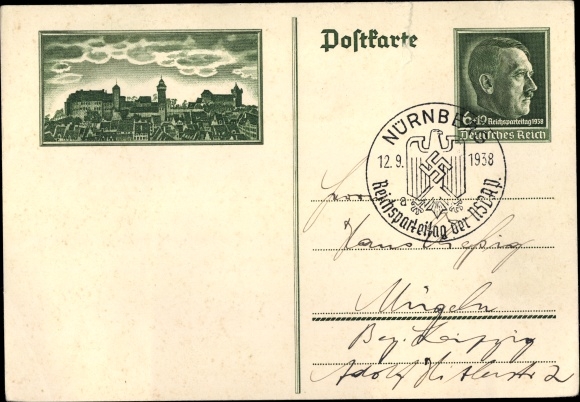 Postkarte
6+19 Reichsparteitag 1938
Deutsches Reich
NÜRNBERG
12.9. 1938
a
Reichsparteitag der NSDAP.
Mügeln
Bez. Leipzig
Adolf Hitlerstr 2